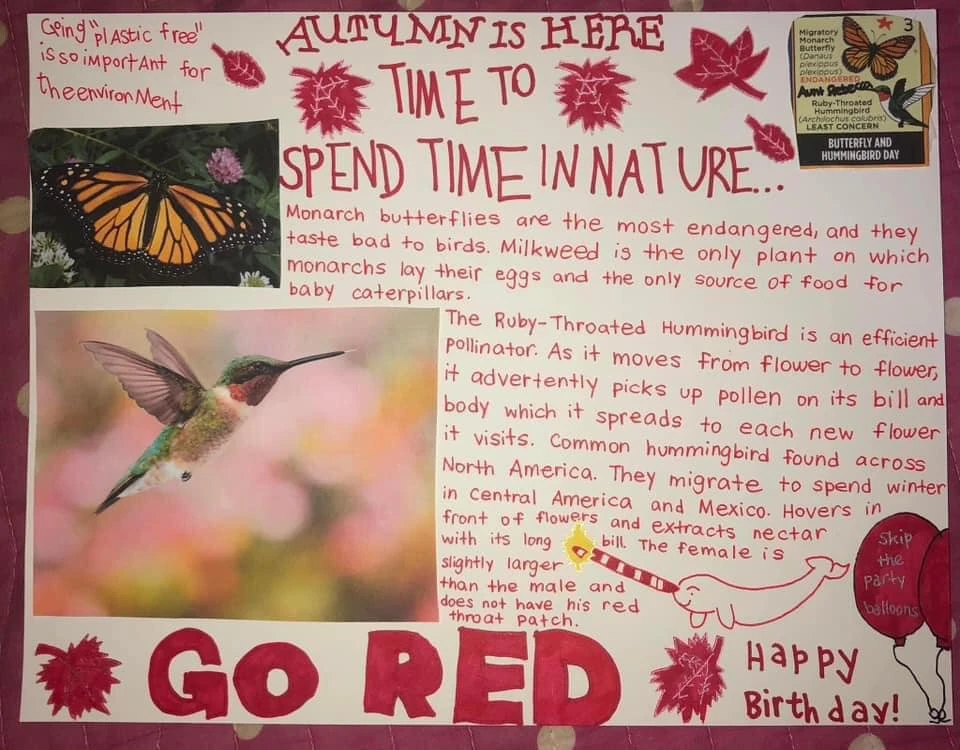 Going "plAstic free"
is so importAnt for
the environMent
AUTUMN IS HERE
TIME TO
SPEND TIME IN NATURE...
3
Migratory
Monarch
Butterfly
(Danaus
plexippus
plexippus)
ENDANGERED
Aunt Rebecca
Ruby-Throated
Hummingbird
(Archilochus colubris)
LEAST CONCERN
BUTTERFLY AND
HUMMINGBIRD DAY
Monarch butterflies are the most endangered, and they
taste bad to birds. Milkweed is the only plant on which
monarchs lay their eggs and the only source of food for
baby caterpillars.
The Ruby-Throated Hummingbird is an efficient
pollinator. As it moves from flower to flower,
it advertently picks up pollen on its bill and
body which it spreads to each new flower
it visits. Common hummingbird found across
North America. They migrate to spend winter
in Central America and Mexico. Hovers in
front of flowers and extracts nectar
with its long bill. The female is
slightly larger
than the male and
does not have his red
throat patch.
Skip
the
party
balloons
GO RED
Happy
Birthday!